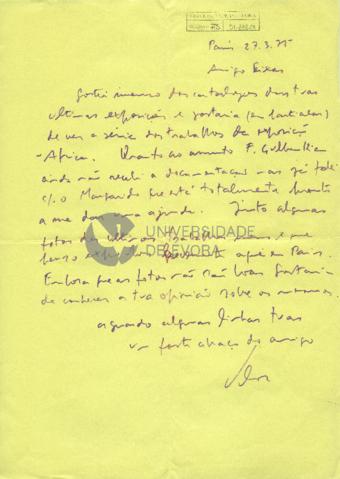 Paris 27.3.75
Amigo Seixas
Gostei imenso dos catalogos das tuas
ultimas exposições e gostaria (em particular)
de ver a série dos trabalhos da exposição
-Africa. Quanto ao assunto F. Gulbenkian
ainda não recebi a documentação mas já falei
c/o Margarido que está totalmente
a me dar uma ajuda. Junto algumas
fotos dos ultimos trabalhos
UNIVERSIDADE
DE ÉVORA
aqui em Paris.
Embora que as fotos não são boas gostaria
de conhecer a tua opinião sobre os mesmos.
aguardo algumas linhas tuas
um forte abraço do amigo